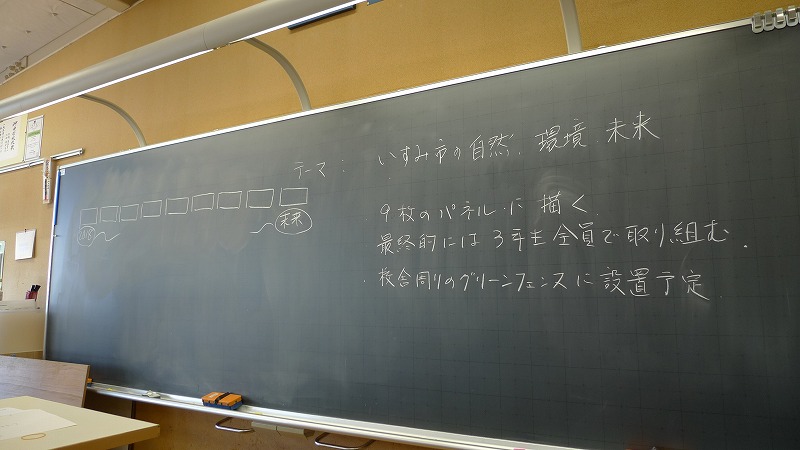 テーマ： いすみ市の自然、環境、未来
9枚のパネルに描く。
最終的には3年生全員で取り組む。
校舎周りのグリーンフェンスに設置予定
未来